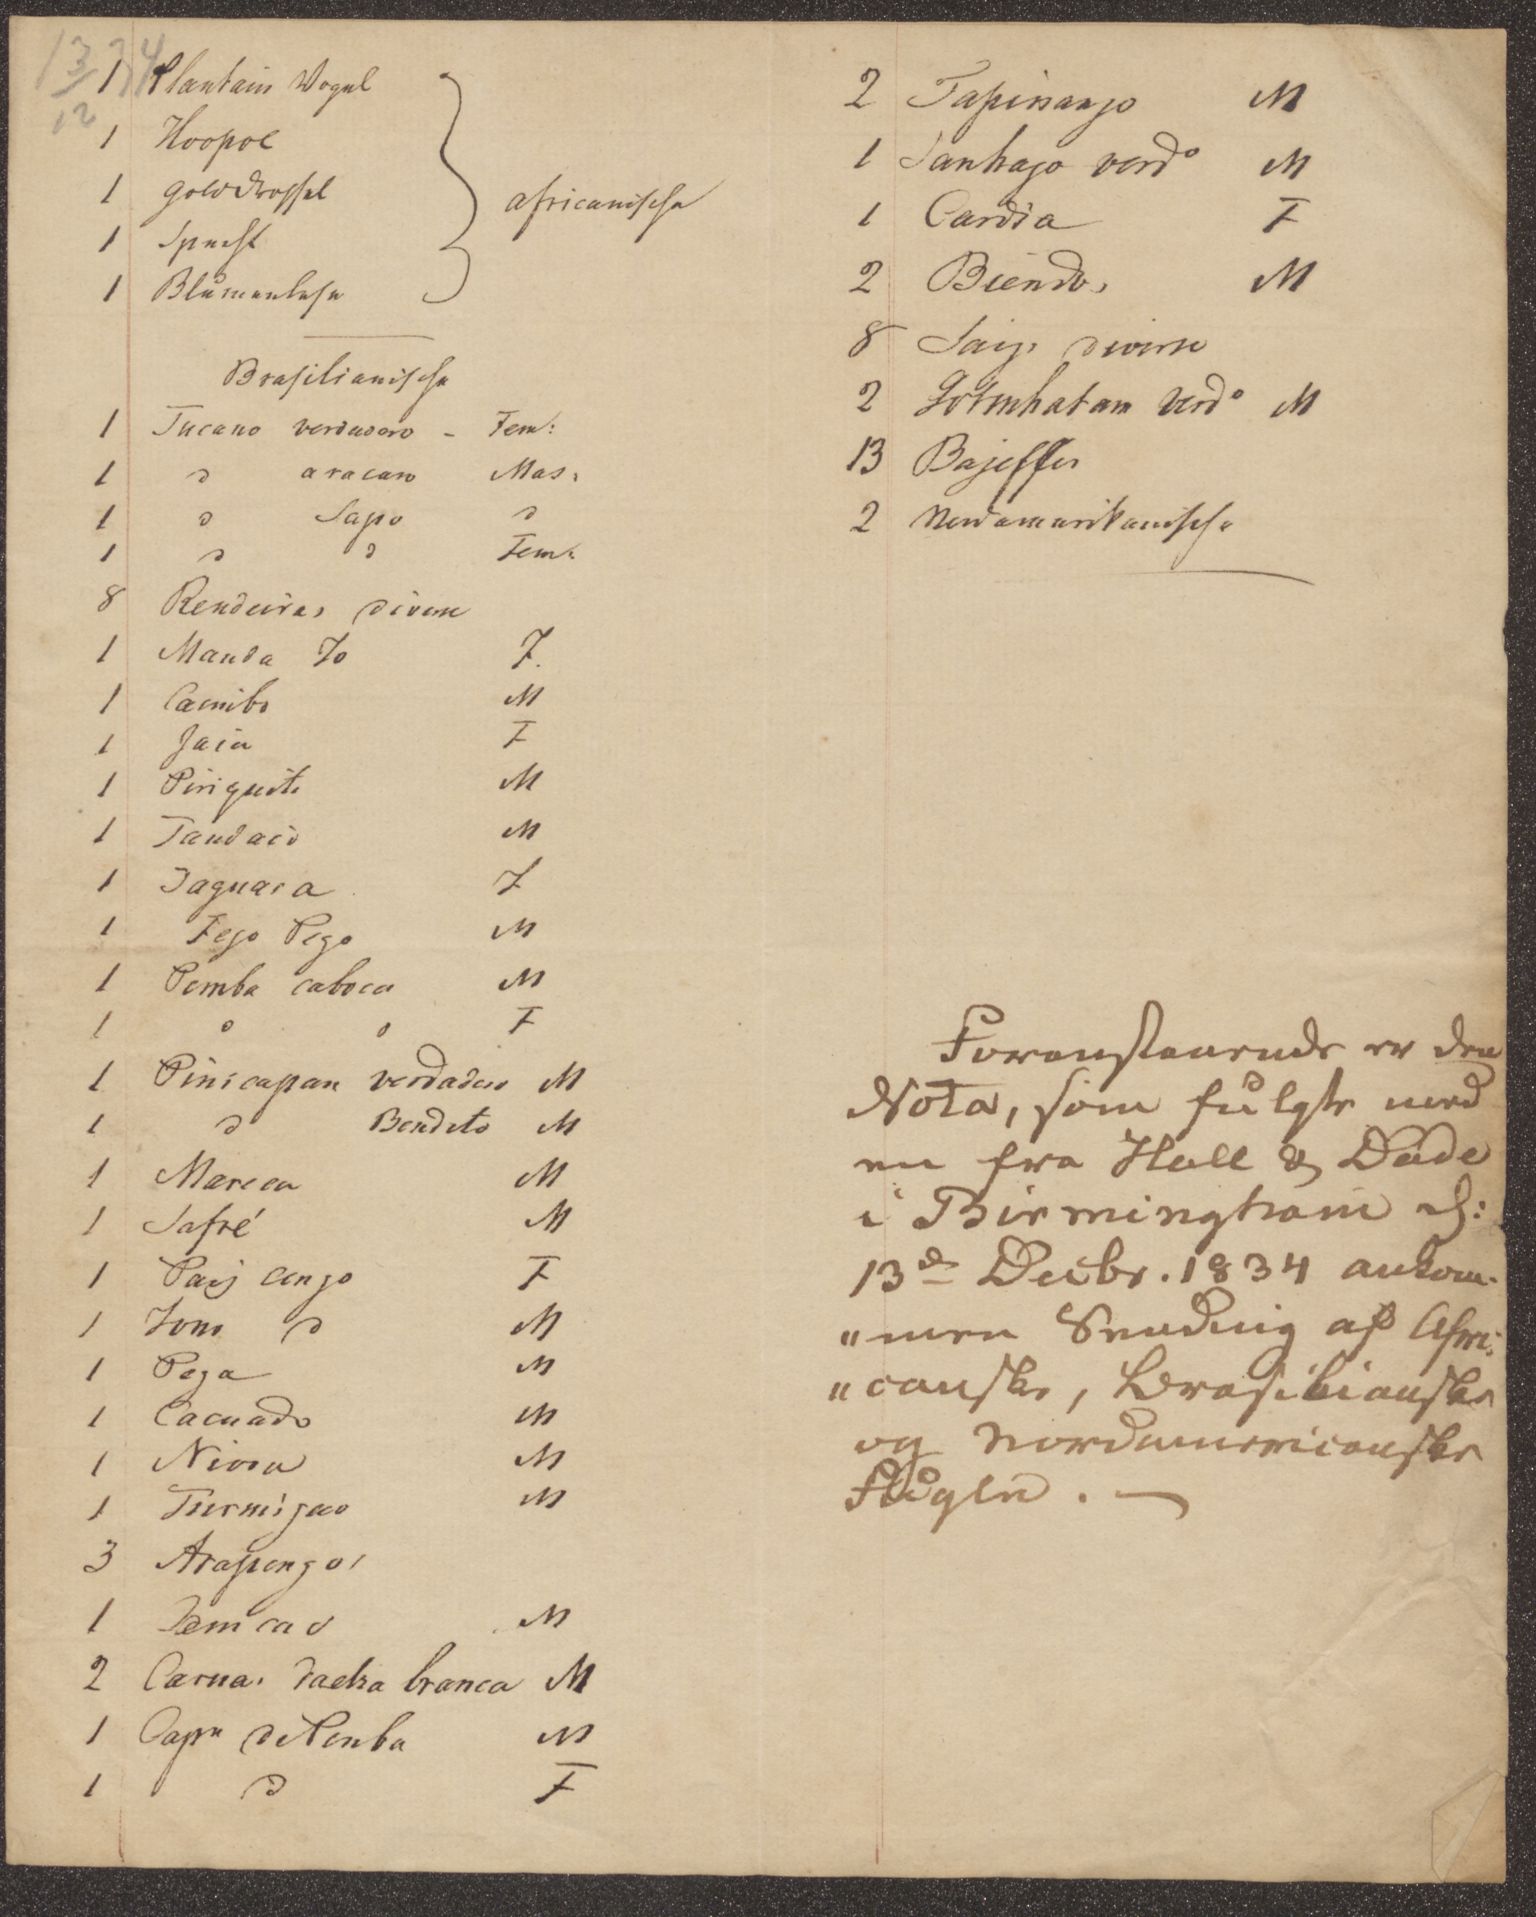 13/12 34
1 Plantain Vogel
1 Hoopoe
1 Golddrossel
1 Specht
1 Blumenlese
africanische
Brasilianische
1 Tucano verdadero - Fem:
1 d aracaro Mas:
1 d Sapo d
1 d d Fem:
8 Rendeiras diverse
1 Manda Jo F.
1 Caenibo M
1 Jaia F
1 Piriquito M
1 Tandaio M
1 Jaguara F
1 Fego Pego M
1 Pomba caboca M
1 d d F
1 Pinicapan verdadero M
1 d Bendito M
1 Mareca M
1 Safré M
1 Paij congo F
1 Jono d M
1 Pega M
1 Cacuado M
1 Nivea M
1 Turmigao M
3 Arapongos
1 Temcao M
2 Carua. dacha branca M
1 Capn de Penba M
1 d F
2 Tapiranjo M
1 Santiago verdo M
1 Cardia F
2 Biendos M
8 Saijs diverse
2 Goturhatam verdo M
13 Bajeffes
2 Nordamerikanische
Foranstaaende er den
Nota, som fulgte med
en fra Hall & Dade
i Birmingham d:
13de Decbr. 1834 ankom-
"men Sending af Afri-
"canske, Brasilianske
og nordamericanske
Fugle. —